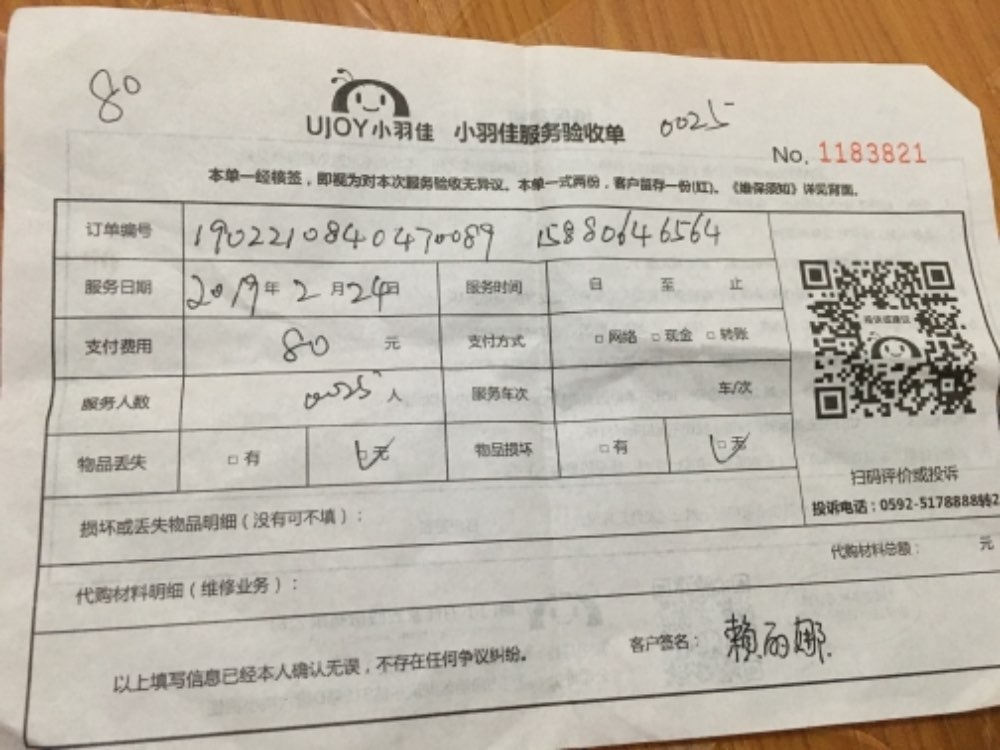 80
UJOY小羽佳 小羽佳服务验收单 0025
No. 1183821
本单一经核签，即视为对本次服务验收无异议。本单一式两份，客户留存一份(红)。《维保须知》详见背面。
订单编号 1902210840470089 15880646564
服务日期 2019年2月24日 服务时间 自 至 止
支付费用 80 元 支付方式 □网络 □现金 □转账
服务人数 0025 人 服务车次 车/次
物品丢失 □有 □无 物品损坏 □有 □无
投诉或建议
扫码评价或投诉
投诉电话：0592-5178888转2
损坏或丢失物品明细（没有可不填）：
代购材料总额： 元
代购材料明细（维修业务）：
客户签名： 赖丽娜
以上填写信息已经本人确认无误，不存在任何争议纠纷。